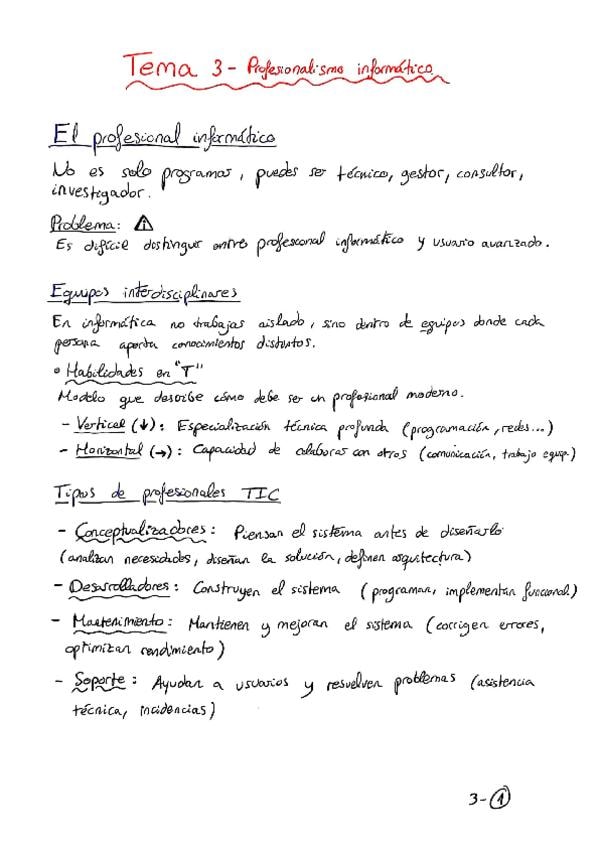 Tema 3 - Profesionalismo informático
El profesional informático
No es solo programar, puedes ser técnico, gestor, consultor,
investigador.
Problema: ⚠
Es dificil distinguir entre profesional informático y usuario avanzado.
Equipos interdisciplinares
En informática no trabajas aislado, sino dentro de equipos donde cada
persona aporta conocimientos distintos.
• Habilidades en "T"
Modelo que describe cómo debe ser un profesional moderno.
- Vertical (↓): Especialización técnica profunda (programación, redes...)
- Horizontal (→): Capacidad de colaborar con otros (comunicación, trabajo equip.)
Tipos de profesionales TIC
- Conceptualizadores: Piensan el sistema antes de diseñarlo
(analizan necesidades, diseñan la solución, definen arquitectura)
- Desarrolladores: Construyen el sistema (programan, implementan funcional)
- Mantenimiento: Mantienen y mejoran el sistema (corrigen errores,
optimizan rendimiento)
- Soporte: Ayudan a usuarios y resuelven problemas (asistencia
técnica, incidencias)
3-①